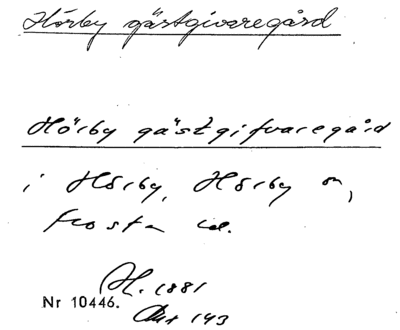 Hörby gästgivaregård
Hörby gästgifvaregård
i Hörby, Hörby sn,
Frosta hd.
H. 1881
Nr 10446.
143